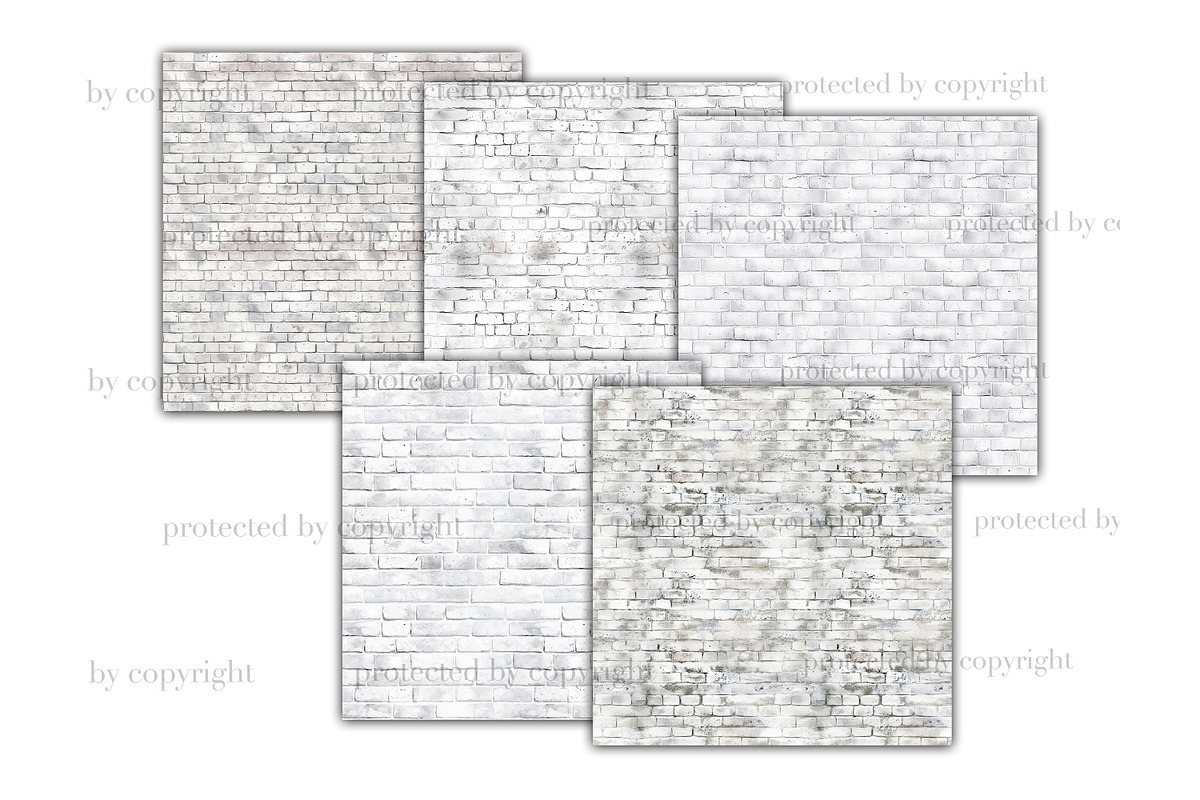 by copyright protected by copyright protected by copyright
protected by copyright protected by copyright protected by co
by copyright protected by copyright protected by copyright
protected by copyright protected by copyright protected by
by copyright protected by copyright protected by copyright